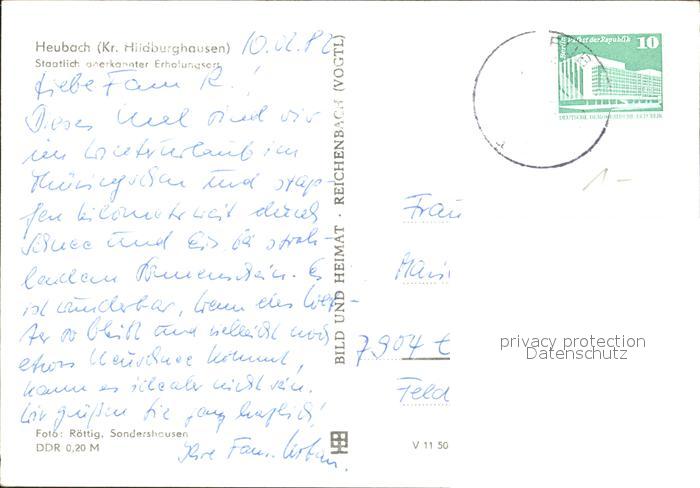 Heubach (Kr. Hildburghausen) 10.02.82
Staatlich anerkannter Erholungsort
Liebe Fam. R.!
Dieses Mal sind wir
im Winterurlaub im
Thüringischen und stap-
fen kilometerweit durch
Schnee und Eis bei strah-
lendem Sonnenschein. Es
ist wunderbar, wenn das Wet-
ter so bleibt und vielleicht noch
etwas Neuschnee kommt,
kann es idealer nicht sein.
Wir grüßen Sie ganz herzlich!
Ihre Fam.
Foto: Röttig, Sondershausen
DDR 0,20 M
BILD UND HEIMAT · REICHENBACH (VOGTL)
V 11 50
Berlin Palast der Republik 10
DEUTSCHE DEMOKRATISCHE REPUBLIK
1-
Frau
7904
Feld
privacy protection
Datenschutz